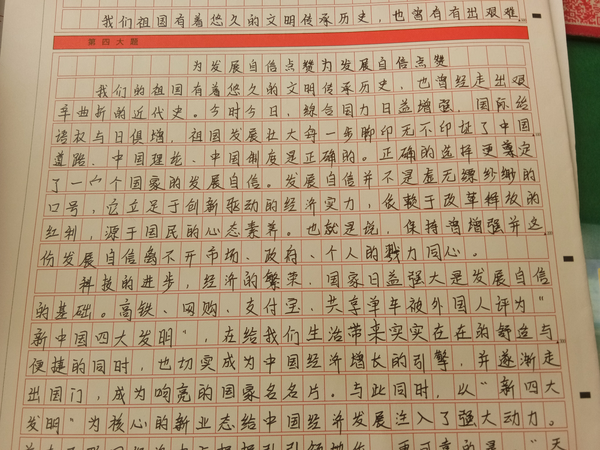 我们祖国有着悠久的文明传承历史,也曾有有出艰难
第四大题
为发展自信点赞为发展自信点赞
我们的祖国有着悠久的文明传承历史,也曾经走出艰
辛曲折的近代史。今时今日,综合国力日益增强,国际给
语权与日俱增,祖国发展壮大每一步脚印无不印证了中国
道路、中国理论、中国制度是正确的。正确的选择更奠定
了一个国家的发展自信。发展自信并不是虚无缥缈的
口号,它立足于创新驱动的经济实力,依赖于改革释放的
红利,源于国民的心态素养。也就是说,保持增强并这
份发展自信离不开市场、政府、个人的戮力同心。
科技的进步,经济的繁荣,国家日益强大是发展自信
的基础。高铁、网购、支付宝、共享单车被外国人评为“
新中国四大发明”,在给我们生活带来实实在在的舒适与
便捷的同时,也切实成为中国经济增长的引擎,并逐渐走
出国门,成为响亮的国家名名片。与此同时,以“新四大
发明”为核心的新业态给中国经济发展注入了强大动力。